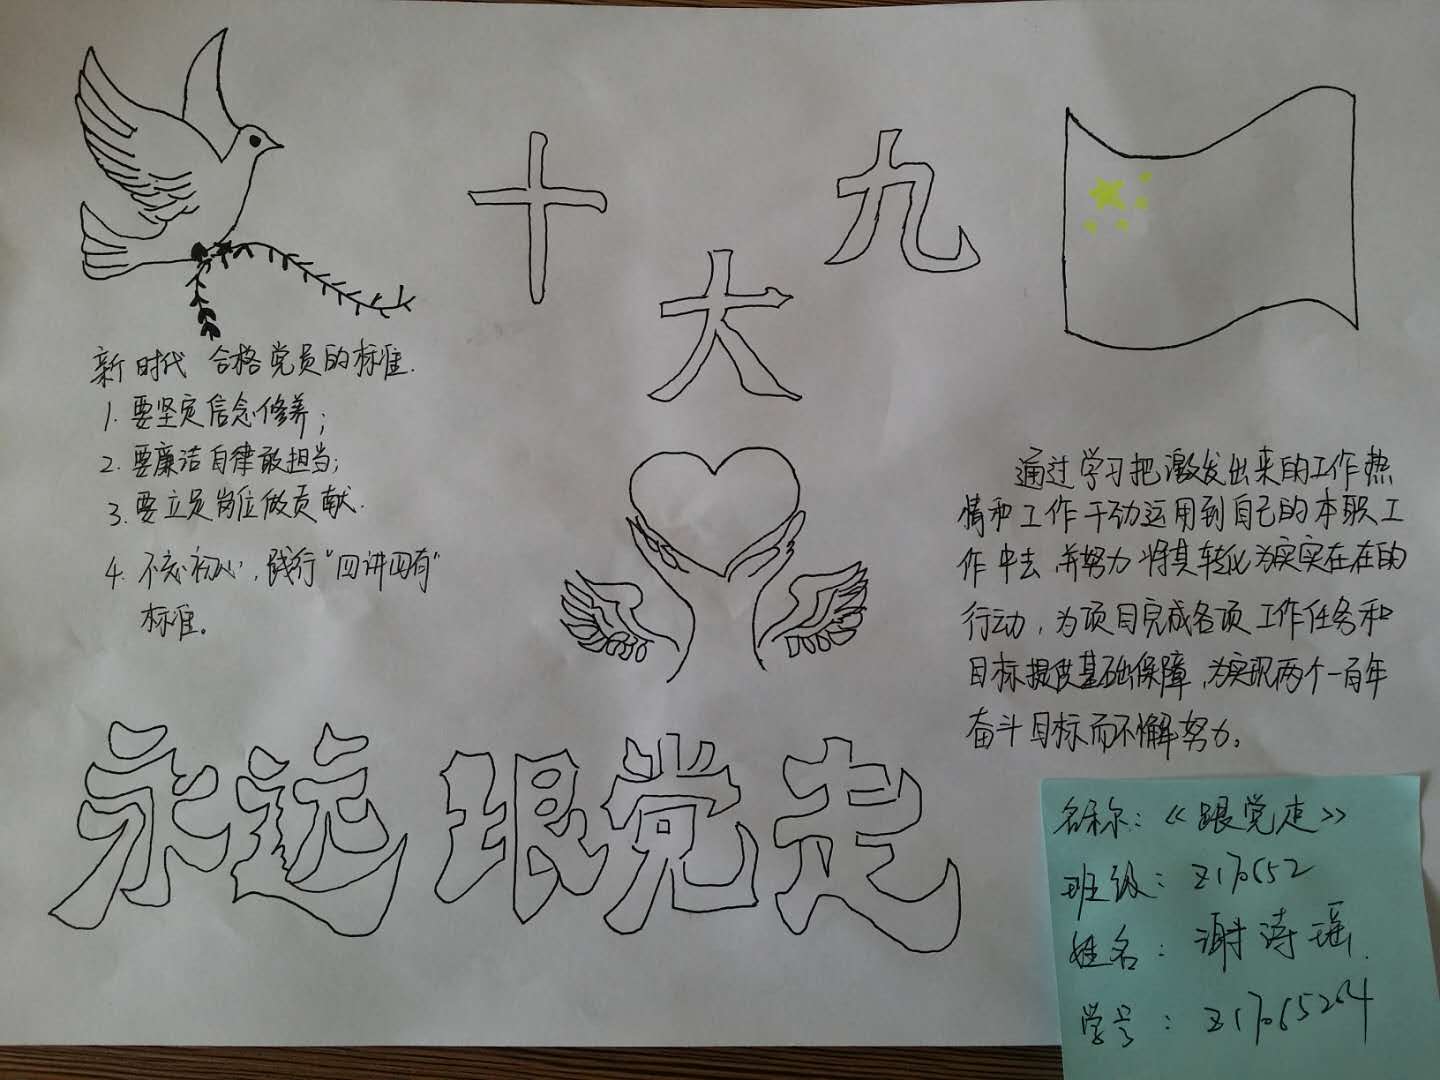 十九大
新时代 合格党员的标准.
1. 要坚定信念修养;
2. 要廉洁自律敢担当;
3. 要立足岗位做贡献.
4. 不忘初心,践行"四讲四有"
标准。
通过学习把激发出来的工作热
情和工作干劲运用到自己的本职工
作中去,并努力将其转化为实实在在的
行动,为项目完成各项工作任务和
目标提供基础保障,为实现两个一百年
奋斗目标而不懈努力。
永远跟党走
名称:《跟党走》
班级: Z170652
姓名: 谢涛瑶
学号: Z17065264